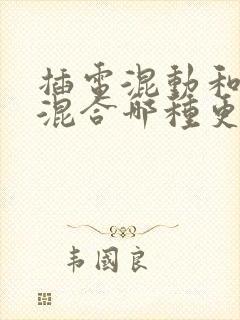 插電混動和
混合哪種更
韦國良